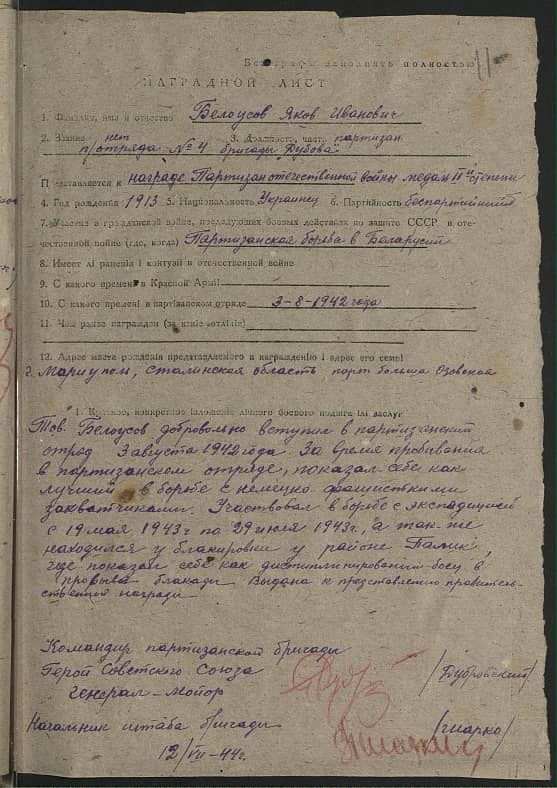 Все графы заполнять полностью
11
НАГРАДНОЙ ЛИСТ
1. Фамилия, имя и отчество Белоусов Яков Иванович
2. Звание нет 3. Должность, часть партизан
п/отряда №4 бригады "Дубова"
Представляется к награде Партизан отечественной войны медаль II й степени
4. Год рождения 1913 5. Национальность Украинец 6. Партийность беспартийный
7. Участие в гражданской войне, последующих боевых действиях по защите СССР и оте-
чественной войне (где, когда) Партизанская борьба в Беларусии
8. Имеет лі ранения і контузіі в отечественной войне
9. С какого времени в Красной Арміі
10. С какого времені в партізанском отряде 3-8-1942 года
11. Чем ранее награжден (за какіе отлічія)
12. Адрес места рожденія представляемого к награжденію і адрес его семьі
г. Мариупом, Сталинская область порт больша Озовская
1. Краткое, конкретное ізложеніе лічного боевого подвіга ілі заслуг
Тов. Белоусов добровольно вступил в партизанский
отряд 3 августа 1942 года. За время пробивания
в партизанском отряде, показал себе как
лучший в борьбе с немецко-фашисткими
захватчиками. Участвовал в борьбе с экспадицией
с 19 мая 1943 г по 29 июля 1943 г, а так-же
находился у блакировки у районе Палик,
где показал себе как дистиплинирований боец в
прорыва блакади. Выдана к представлению правитель-
ственной награди
Командир партизанской бригади
Герой Советского Союза
Генерал-Мойор /Дубровский/
Начальник штаба бригади /Гнарко/
12/VII-44 г.